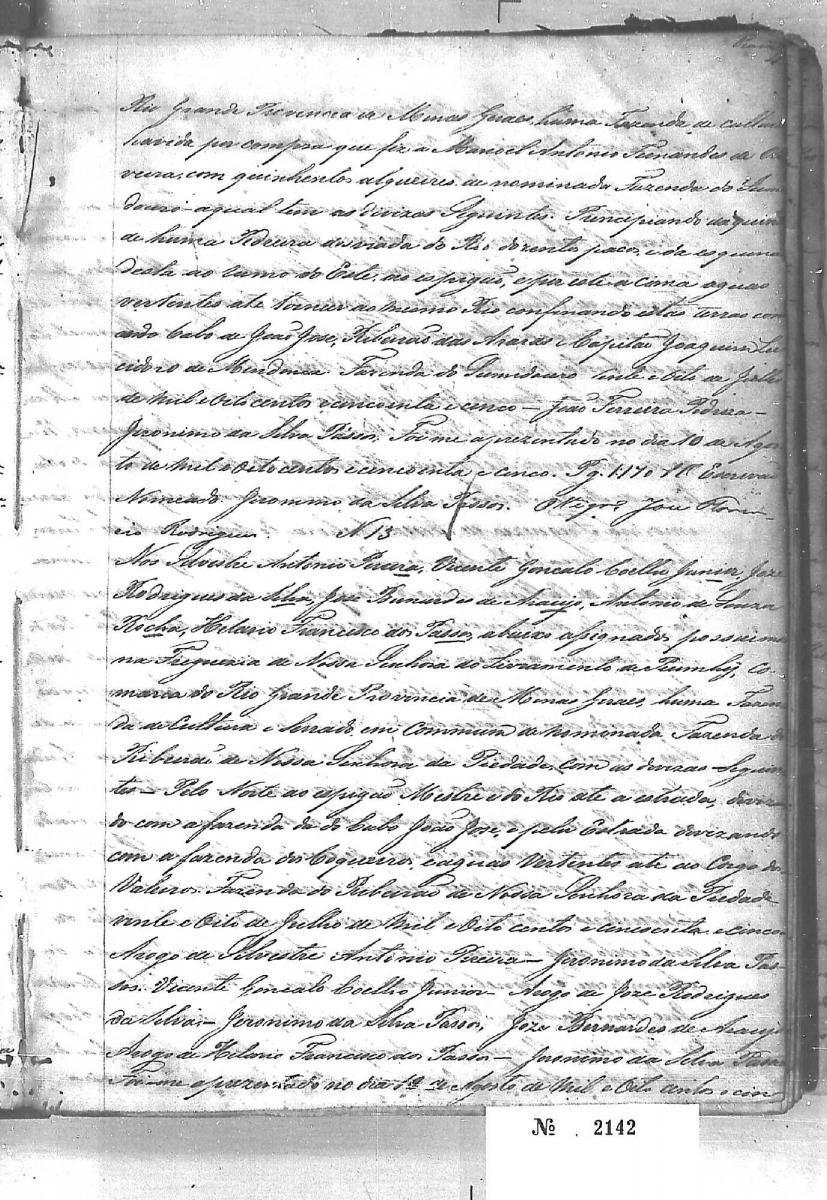 Rio Grande Provincia de Minas Geraes, huma Fazenda de cultura
havida por compra que fiz a Manoel Antonio Fernandes de Oli
veira, com quinhentos alqueires, de nominada Fazenda do Sumi
douro aqual tem as divizas Seguintes. Principiando da quina
de huma Pedeira desviada do Rio dozento paço, e da esquina
desta ao rumo do Este, ao espigão, e por este a cima aguas
vertentes até tornar ao mesmo Rio confinando estas terras com
as do Cabo de João Jose, Ribeirão das Araras e Capitão Joaquim
cidoro de Mendonça Fazenda do Sumidouro vinte e Oito de Julho
de mil e Oito centos e cincoenta e cinco — João Ferreira Pedroza —
Jeronimo da Silva Passos. Foi me aprezentado no dia 10 de Agos
to de Mil e Oito centos e cincoenta e cinco. Pg. 1170 rs O Escrivão
Nomeado Jeronimo da Silva Passos. O Vigrº Jose Floren
cio Rodrigues. N 13
Nos Silvestre Antonio Pereira, Vicente Goncalo Coelho Junior, Joze
Rodrigues da Silva, Joze Bernardes de Araujo, Antonio de Souza
Rocha, Hilario Francisco dos Passos, abaixo assignados, possuimos
na Freguezia de Nossa Senhora do Livramento de Piumhy, Co-
marca do Rio Grande Provincia de Minas Geraes, huma Fazen
da de Cultura e Serrado, em Commum de nominada Fazenda do
Ribeirão de Nossa Senhora da Piedade, com as divizas Seguin
tes — Pelo Norte ao espigão Mestre e do Rio até a estrada, diviza
do com a fazenda da do Cabo João Jose, e pela Estrada divizando
com a fazenda dos Coqueiros, e aguas Vertentes até ao Corgo dos
Valeiros. Fazenda do Ribeirão de Nossa Senhora da Piedade
vinte e Oito de Julho de Mil e Oito centos e cincoenta e cinco
Arogo de Silvestre Antonio Pereira — Jeronimo da Silva Pas
sos. Vicente Goncalo Coelho Junior — Arogo de Joze Rodrigues
da Silva — Jeronimo da Silva Passos, Joze Bernardes de Araujo
Arogo de Hilario Francisco dos Passos — Jeronimo da Silva Passos
Foi-me aprezentado no dia de Agosto de Mil e Oito centos e cin
Nº 2142